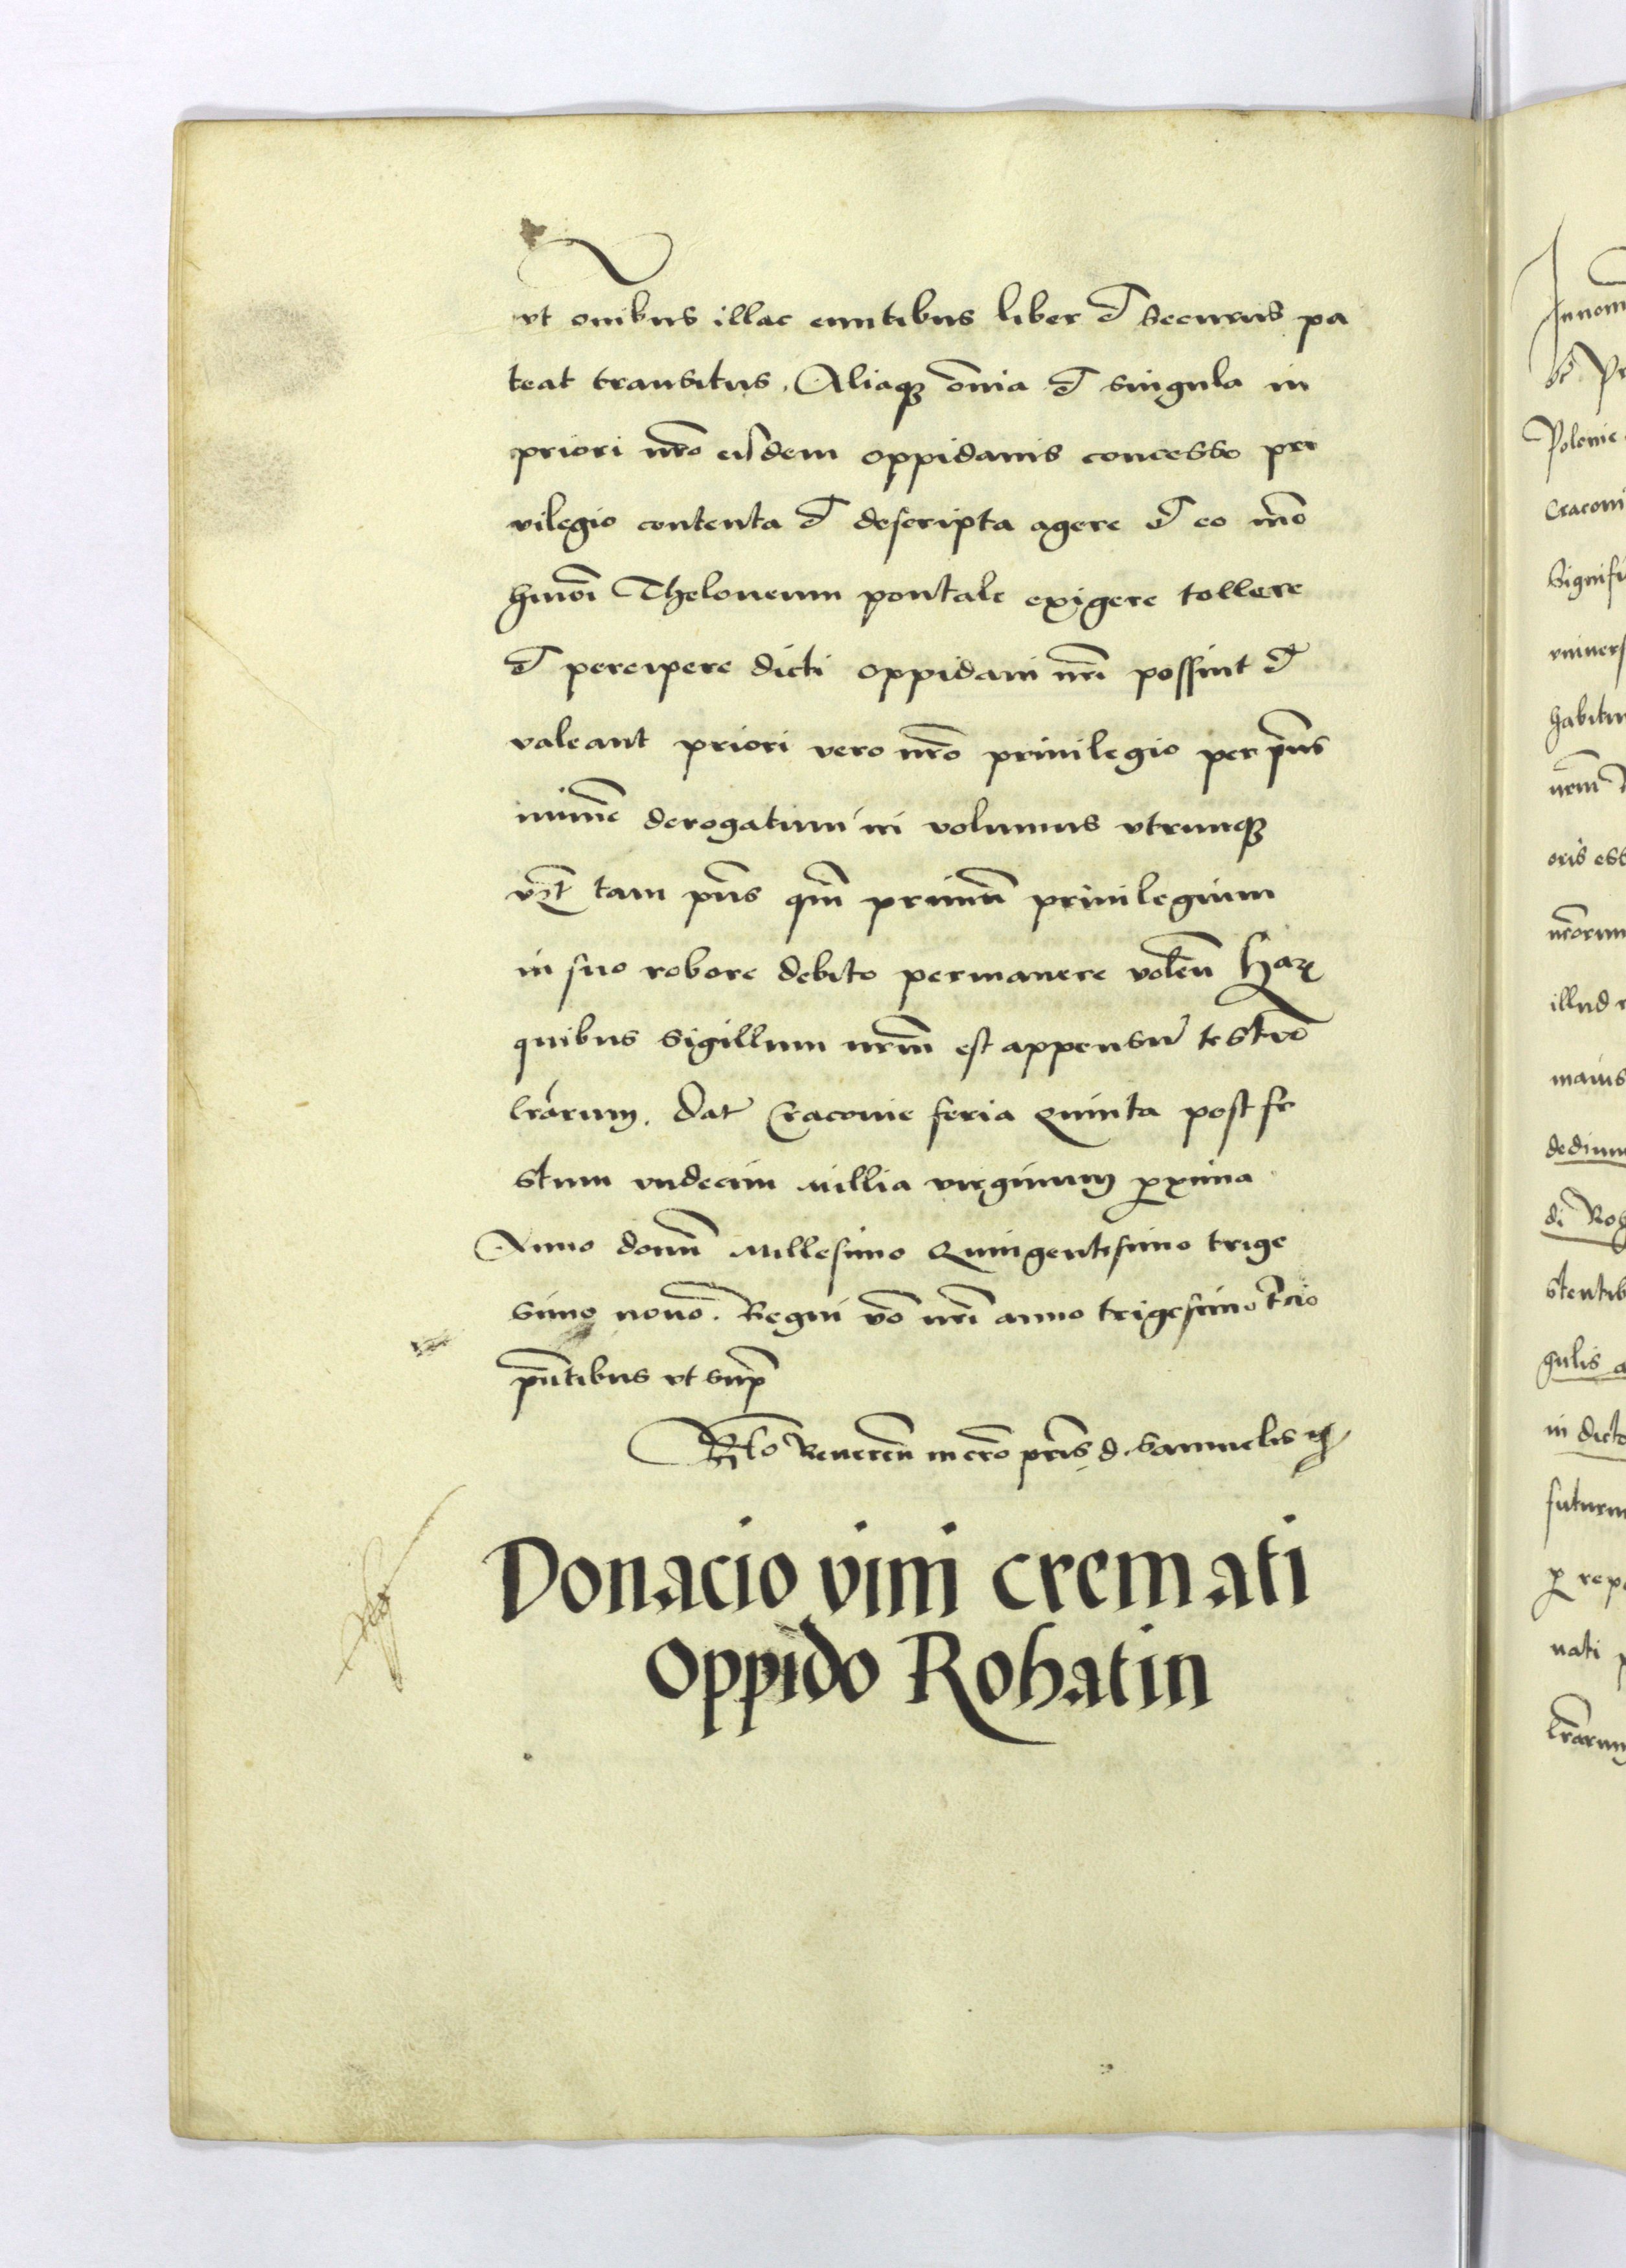 vt om̅ibus illac euntibus liber et securus pa
teat transitus. Aliaqꝫ om̅ia et singula in
priori nr̅o eisdem oppidanis concesso pri
vilegio contenta et descripta agere et eo mo̅
hm̅o̅i Theloneum pontale exigere tollere
et percipere dicti oppidani nr̅i possint et
valeant priori vero nr̅o priuilegio per pn̅s
minime̅ derogatum iri volumus vtrumqꝫ
vꝫt̅ tam pn̅s qm̅ primu̅ priuilegium
in suo robore debito permanere volen̅ Haꝝ
quibus sigillum nr̅m est appensu̅ testi̅o̅
lr̅arum. Dat̅ Cracouie feria Quinta post fe
stum vndecim Millia virginum ꝓxima
Anno domi̅ Millesimo Quingentesimo trige
simo nono. Regni vo̅ nr̅i anno trigesimo tr̅cio
pn̅tibus vt supᷓ
Rl̅o Reueren̅ in cr̅o pr̅is d. Samuelis
Donacio vini cremati
Oppido Rohatin
In nom
Polonie
Cracoui
Signifi
vniuers
habitu
nr̅m
oris ess
nr̅orum
illud
maius
dedimu
di Roh
stentib
gulis a
in dicto
futurm
ꝑ rep
nati p
lr̅arum